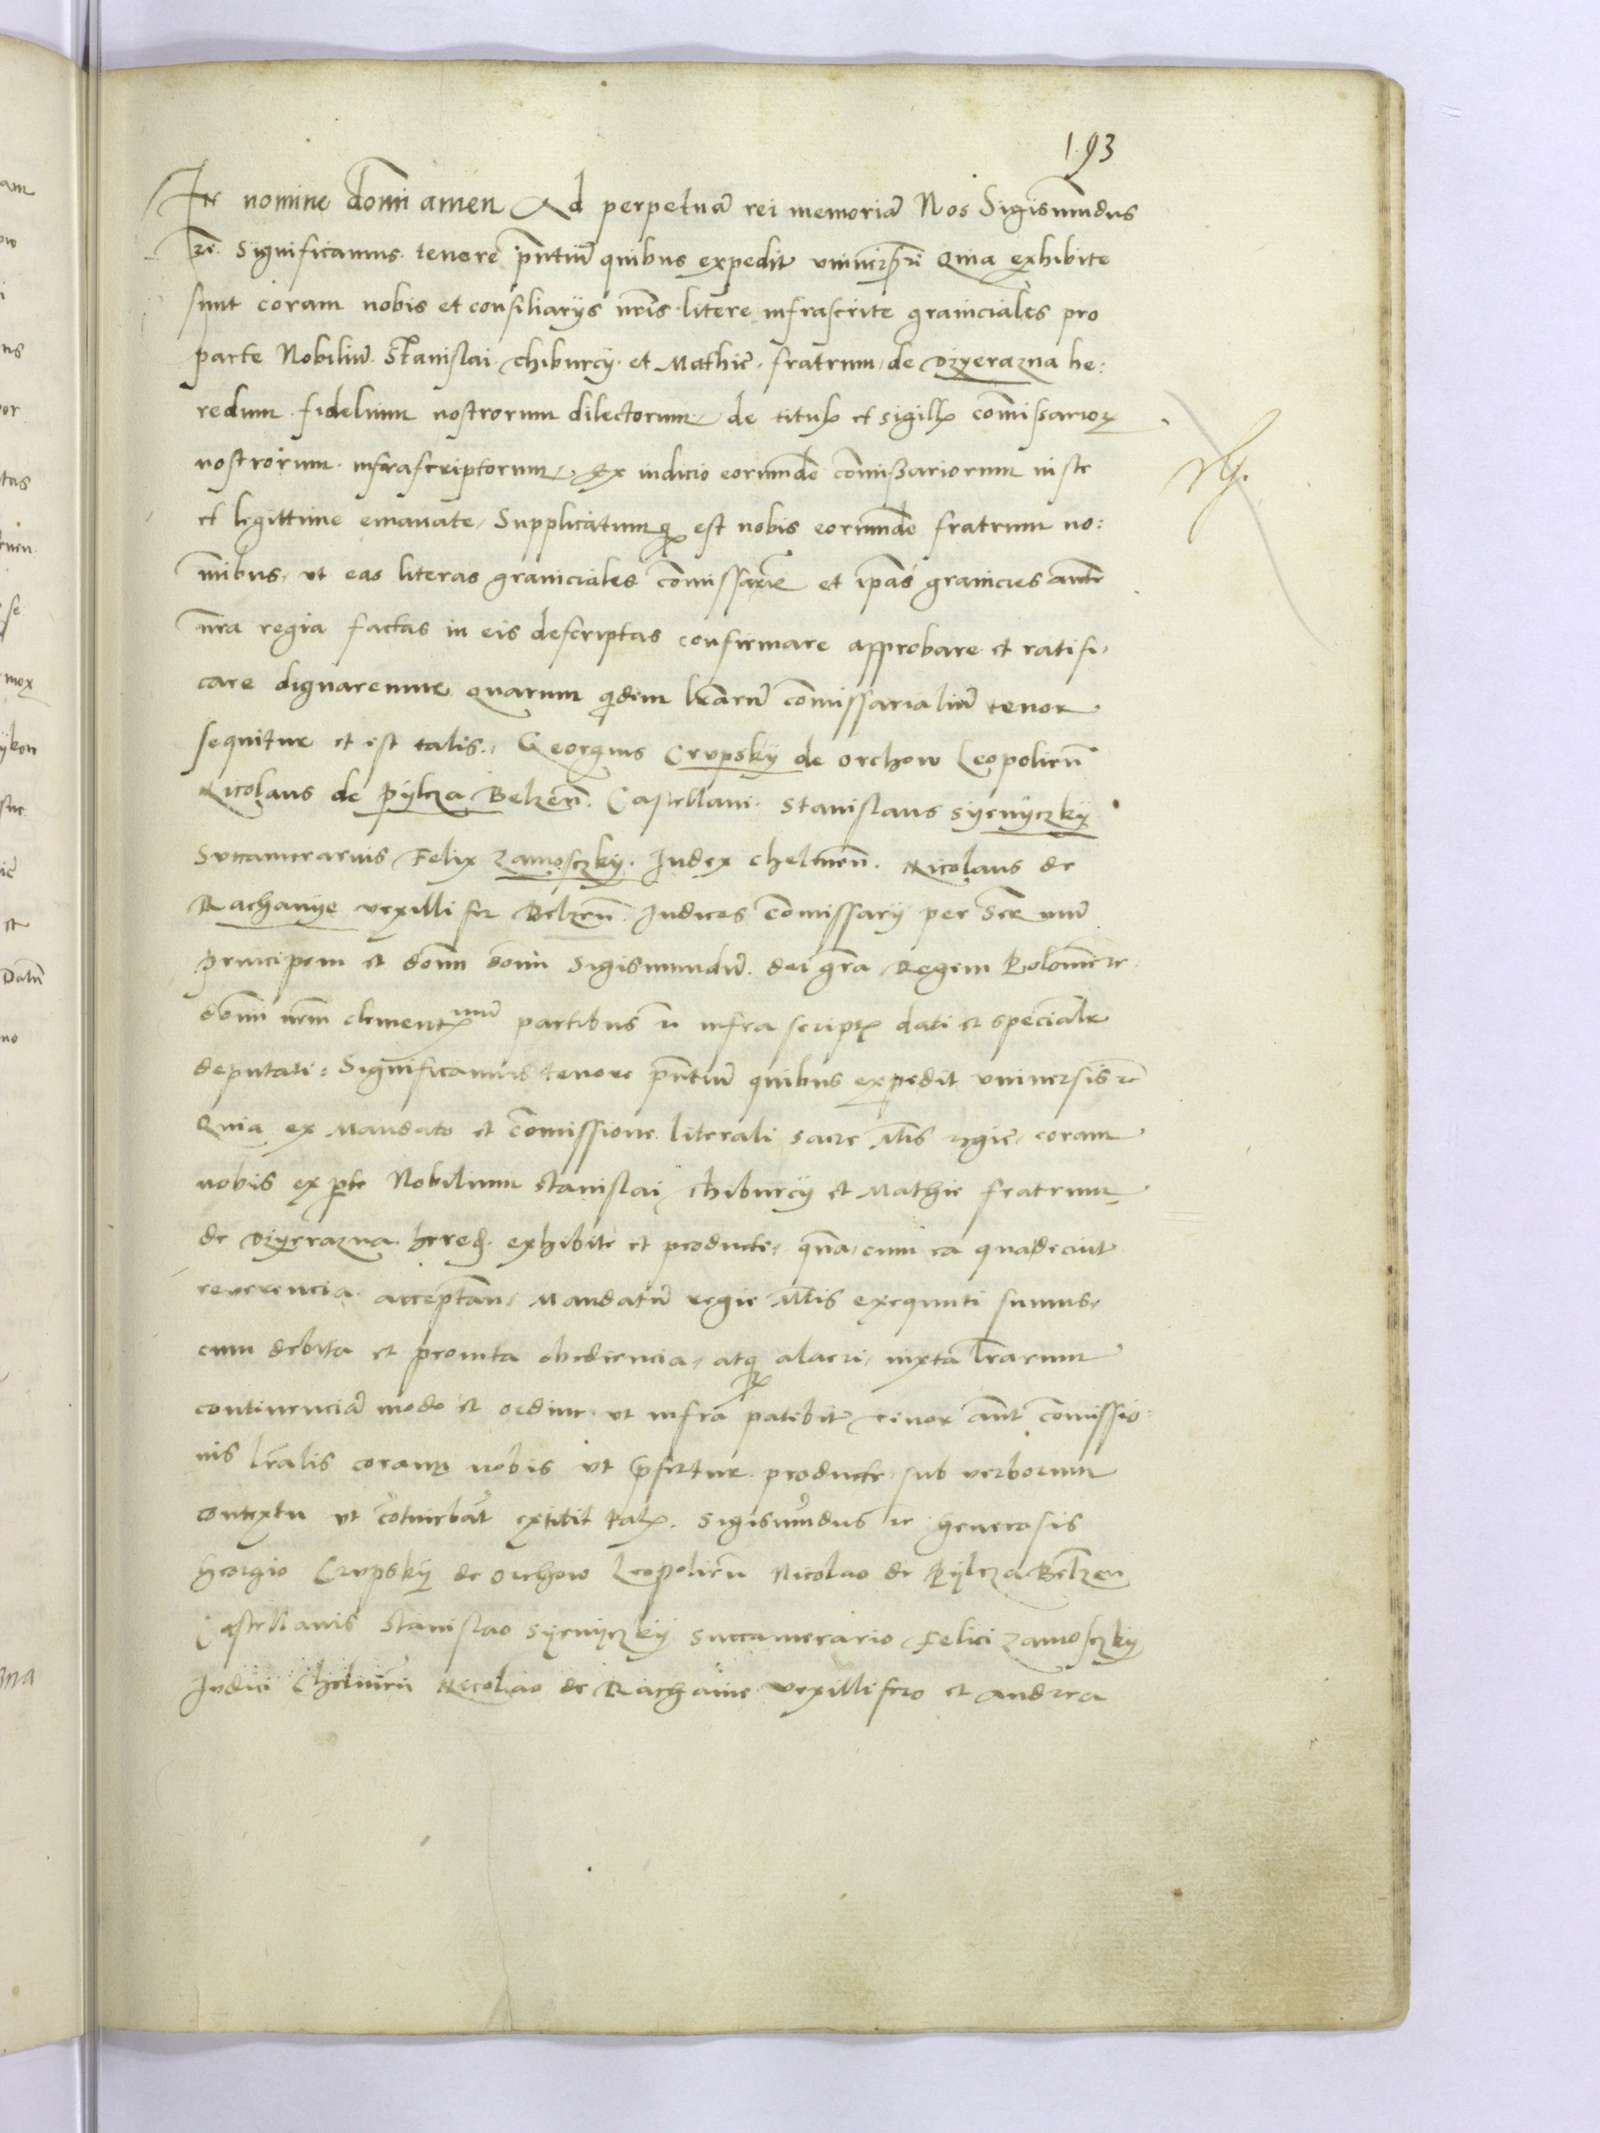 193
In nomine domi amen Ad perpetuam rei memoriam Nos Sigismundus
etc. Significamus tenore pntium quibus expedit universis etc Quia exhibite
sunt coram nobis et consiliariis nris litere infrascrite graniciales pro
parte Nobilium Stanislai Chiburcy et Mathie fratrum de Dzyerazna he:
redum fidelium nostrorum dilectorum de titulis et sigillis commissariorum
nostrorum infrascriptorum Ex indicio eorumdem commissariorum iuste
et legittime emanate Supplicatumque est nobis eorumdem fratrum no:
minibus ut eas literas graniciales commissarie et ipas granicies auntte
nra regia factas in eis descriptas confirmare approbare et ratifi
care dignaremur quarum quidem lrarum commissarialium tenor
sequitur et est talis Georgius Crupsky de Orchow Leopolien
Nicolaus de Pylcza Belzen Castellani Stanislaus Syrnyczky
Succamerarius Felix Zamosczky Iudex Chelmen Nicolaus de
Rachanye vexillifer Belzen Iudices Comissarij per Ser mum
principem et domi domi Sigismundum dei gra Regem Polonie etc
domi nrm clementmum partibus in infrascriptis dati et specialr
deputati Significamus tenore pntium quibus expedit universis etc
Quia ex Mandato et Comissione literali sacre Mtis regie coram
nobis ex pte Nobilium Stanislai Chiburcy et Mathie fratrum
de Dzyerazna hered exhibite et producte qua cum ea qua decuit
reverencia acceptan Mandatum regie Mtis exequuti sumus
cum debita et promta obediencia atque alacri iuxta lrarum
continenciam modo et ordine ut infra patebit tenor aut Comissio
nis lralis coram nobis ut prefertur producte sub verborum
contextu ut continebatur extitit talis Sigismundus etc Generosis
Georgio Crupsky de Orchow Leopolien Nicolao de Pylcza Belzen
Castellanis Stanislao Syrnyczky Succamerario Felici Zamosczky
Iudici Chelmen Nicolao de Rachanie vexillifero et Andrea